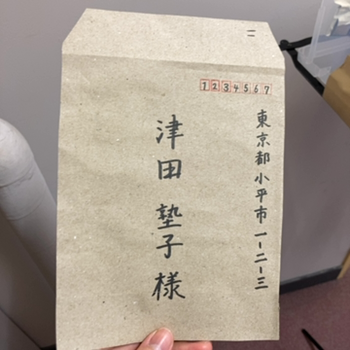 二
1234567
東京都小平市一-二-三
津田塾子様